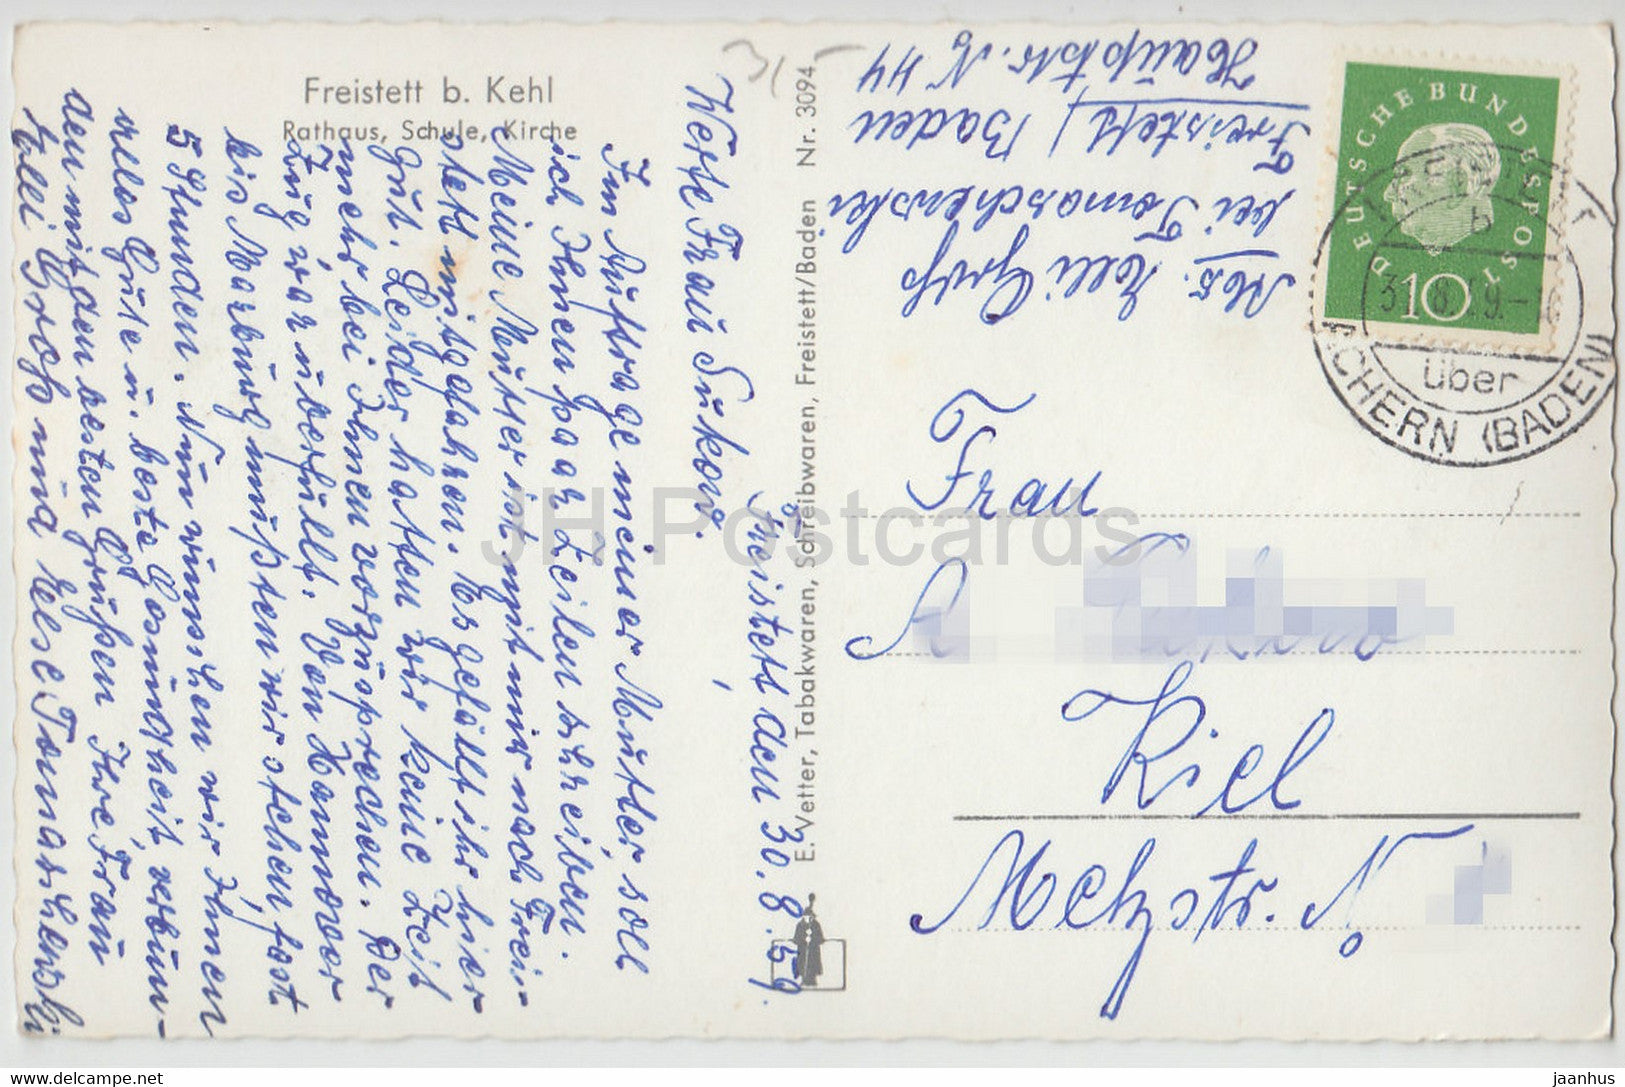 Freistett b. Kehl
Rathaus, Schule, Kirche
E. Vetter, Tabakwaren, Schreibwaren, Freistett/Baden Nr. 3094
Freistett den 30.8.59.
Werte Frau Sukow.
Im Auftrage meiner Mutter, soll
ich Ihnen paar Zeilen schreiben.
Meine Mutter ist mit mir nach Frei-
stett mitgefahren. Es gefällt ihr hier
gut. Leider hatten wir keine Zeit
mehr bei Ihnen vorzusprechen. Der
Zug war überfüllt. Von Hannover
bis Marburg mußten wir stehen, fast
5 Stunden. Nun wünschen wir Ihnen
alles Gute u. beste Gesundheit, verbun-
den mit den besten Grüßen Ihre Frau
Elli Groß und Else Tomaschewski
Abs. Elli Groß
bei Tomaschewski
Freistett / Baden
Hauptstr. N 44
DEUTSCHE BUNDESPOST
10
FREISTETT
b
über
ACHERN (BADEN)
Frau
A
Kiel
Metzstr. No
JH Postcards
delcampe.net
jaanhus